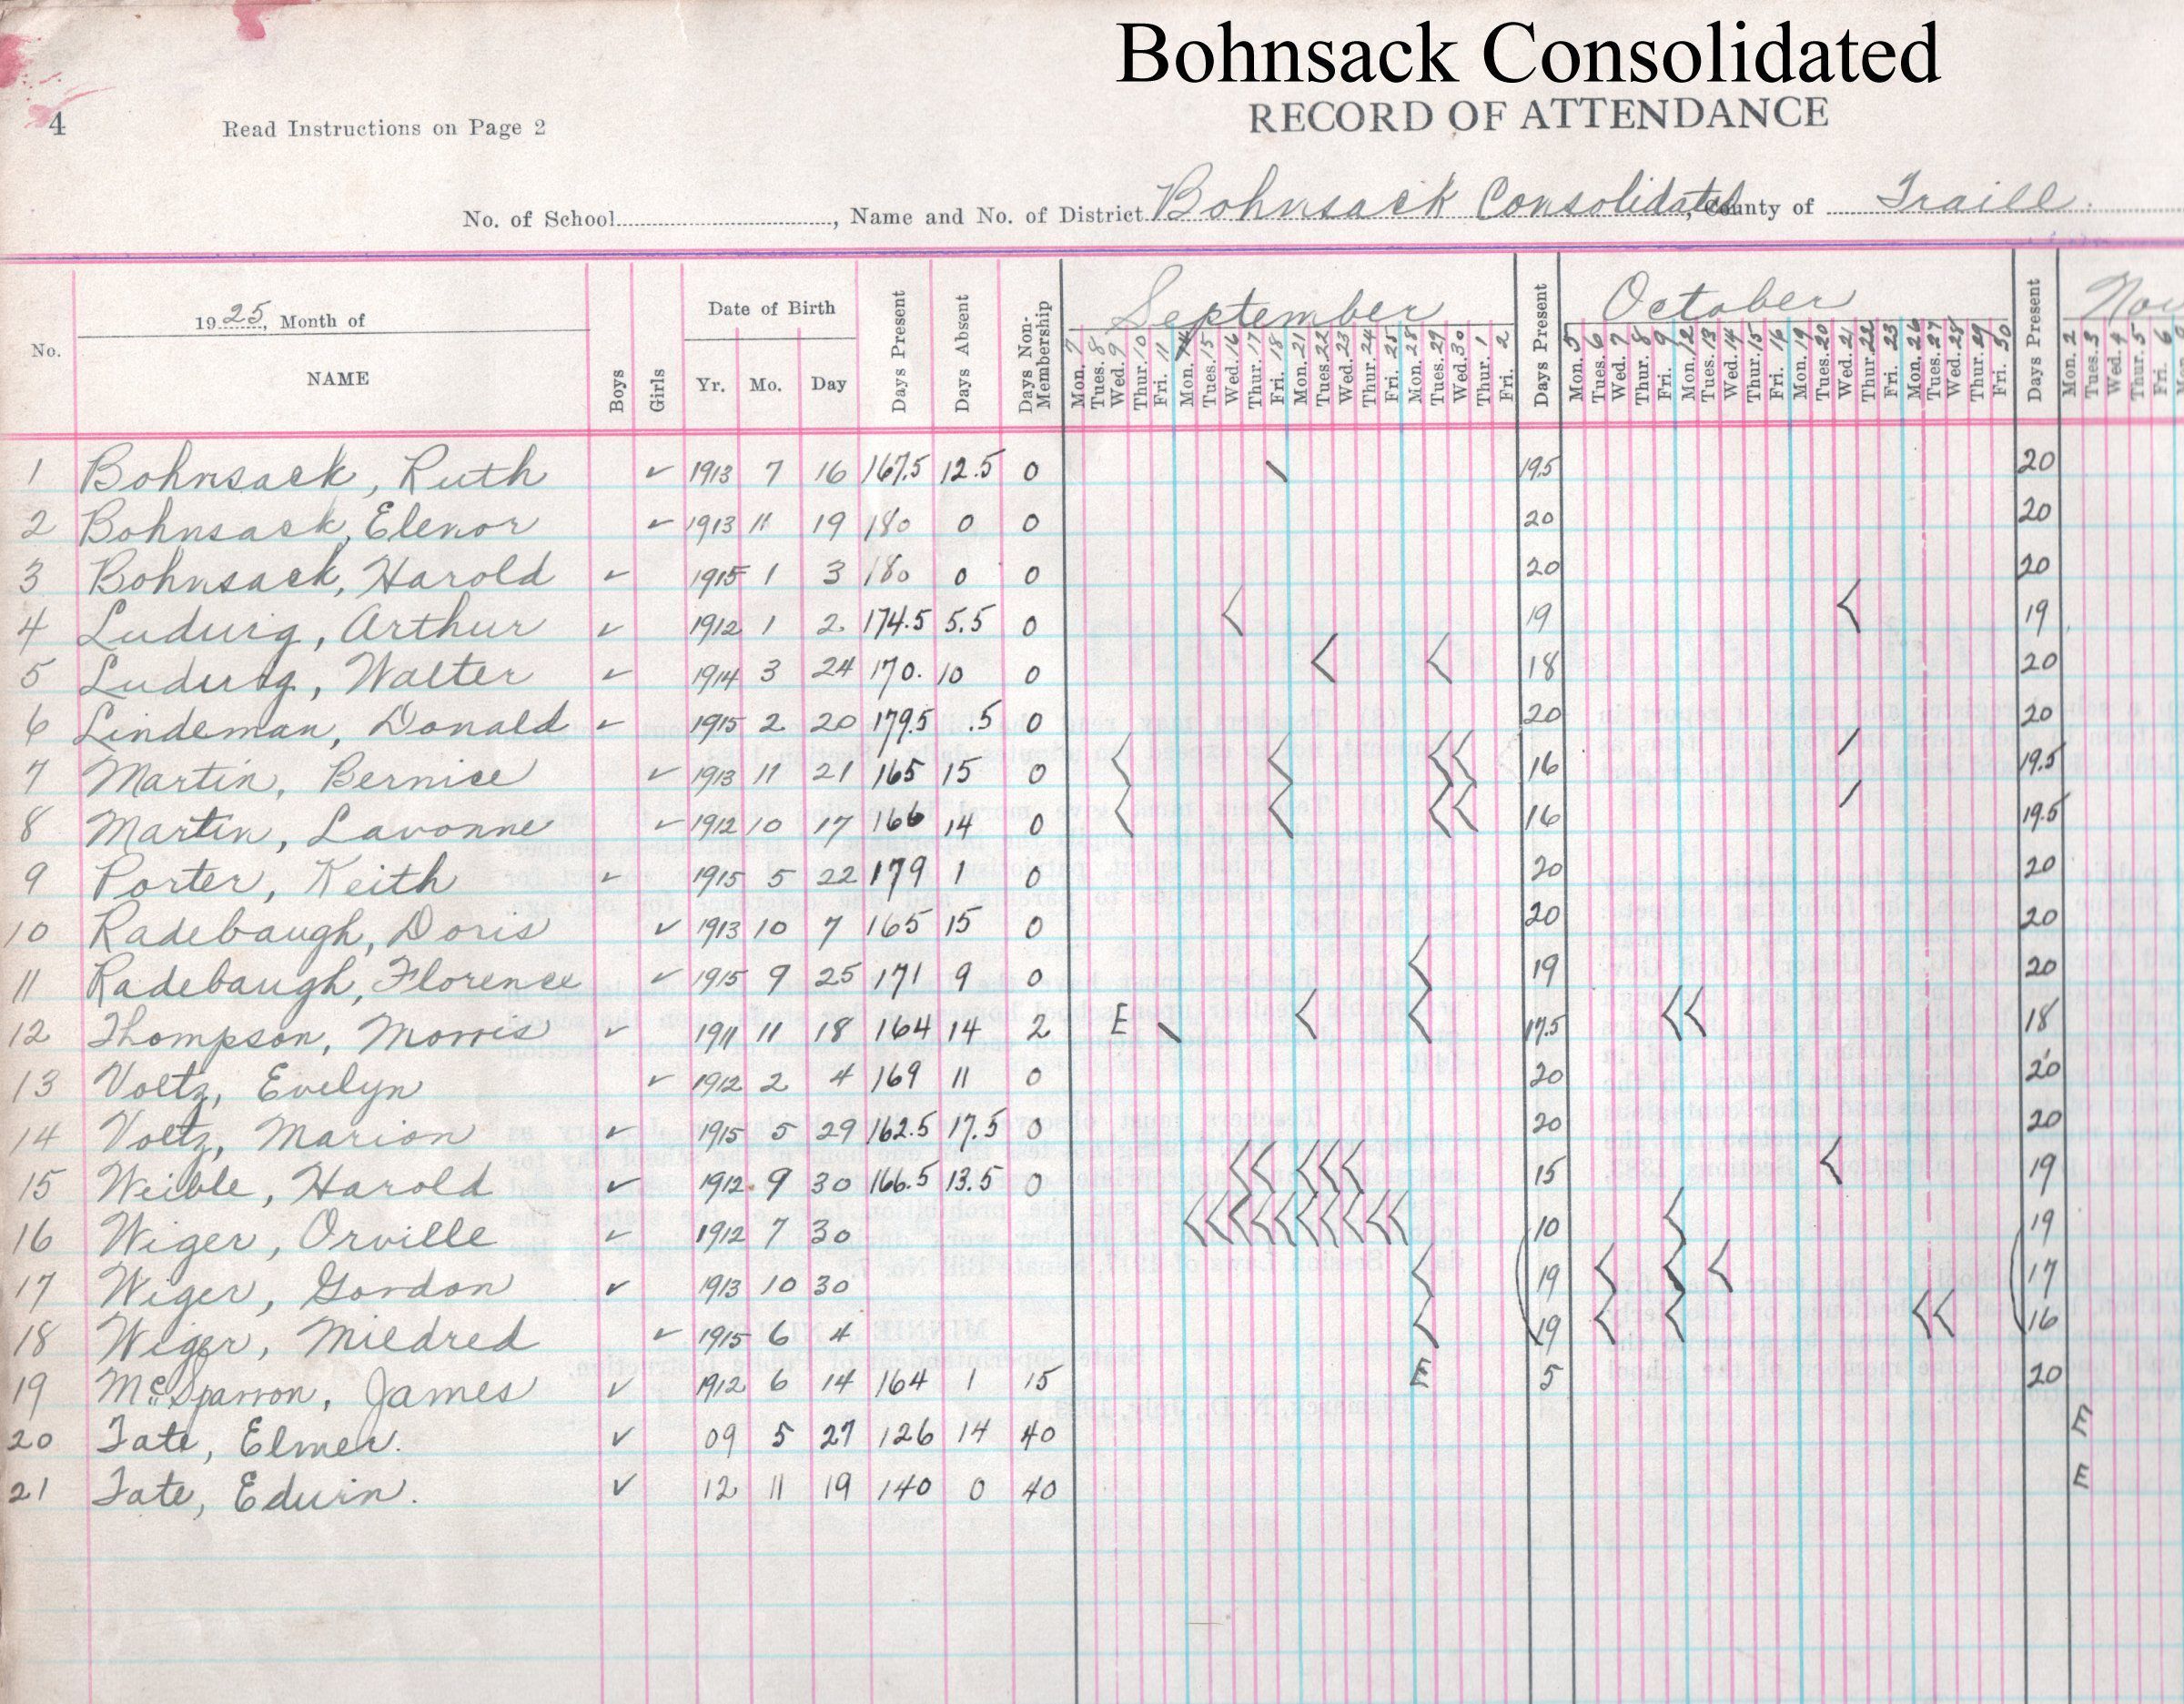 Bohnsack Consolidated
RECORD OF ATTENDANCE
4 Read Instructions on Page 2
No. of School, Name and No. of District Bohnsack Consolidated, County of Traill.
September October Nov
1925, Month of
No. NAME Boys Girls Date of Birth Yr. Mo. Day Days Present Days Absent Days Non-Membership Days Present Days Present
Mon. 7 Tues. 8 Wed. 9 Thur. 10 Fri. 11 Mon. 14 Tues. 15 Wed. 16 Thur. 17 Fri. 18 Mon. 21 Tues. 22 Wed. 23 Thur. 24 Fri. 25 Mon. 28 Tues. 29 Wed. 30 Thur. 1 Fri. 2
Mon. 5 Tues. 6 Wed. 7 Thur. 8 Fri. 9 Mon. 12 Tues. 13 Wed. 14 Thur. 15 Fri. 16 Mon. 19 Tues. 20 Wed. 21 Thur. 22 Fri. 23 Mon. 26 Tues. 27 Wed. 28 Thur. 29 Fri. 30
Mon. 2 Tues. 3 Wed. 4 Thur. 5 Fri. 6
1 Bohnsack, Ruth ✓ 1913 7 16 167.5 12.5 0 19.5 20
2 Bohnsack, Elenor ✓ 1913 11 19 180 0 0 20 20
3 Bohnsack, Harold ✓ 1915 1 3 180 0 0 20 20
4 Ludwig, Arthur ✓ 1912 1 2 174.5 5.5 0 19 19
5 Ludwig, Walter ✓ 1914 3 24 170. 10 0 18 20
6 Lindeman, Donald ✓ 1915 2 20 179.5 .5 0 20 20
7 Martin, Bernice ✓ 1913 11 21 165 15 0 16 19.5
8 Martin, Lavonne ✓ 1912 10 17 166 14 0 16 19.5
9 Porter, Keith ✓ 1915 5 22 179 1 0 20 20
10 Radebaugh, Doris ✓ 1913 10 7 165 15 0 20 20
11 Radebaugh, Florence ✓ 1915 9 25 171 9 0 19 20
12 Thompson, Morris ✓ 1911 11 18 164 14 2 E 17.5 18
13 Voltz, Evelyn ✓ 1912 2 4 169 11 0 20 20
14 Voltz, Marion ✓ 1915 5 29 162.5 17.5 0 20 20
15 Weible, Harold ✓ 1912 9 30 166.5 13.5 0 15 19
16 Wiger, Orville ✓ 1912 7 30 10 19
17 Wiger, Gordon ✓ 1913 10 30 19 17
18 Wiger, Mildred ✓ 1915 6 4 19 16
19 McSparron, James ✓ 1912 6 14 164 1 15 E 5 20
20 Tate, Elmer. ✓ 09 5 27 126 14 40 E
21 Tate, Edwin. ✓ 12 11 19 140 0 40 E